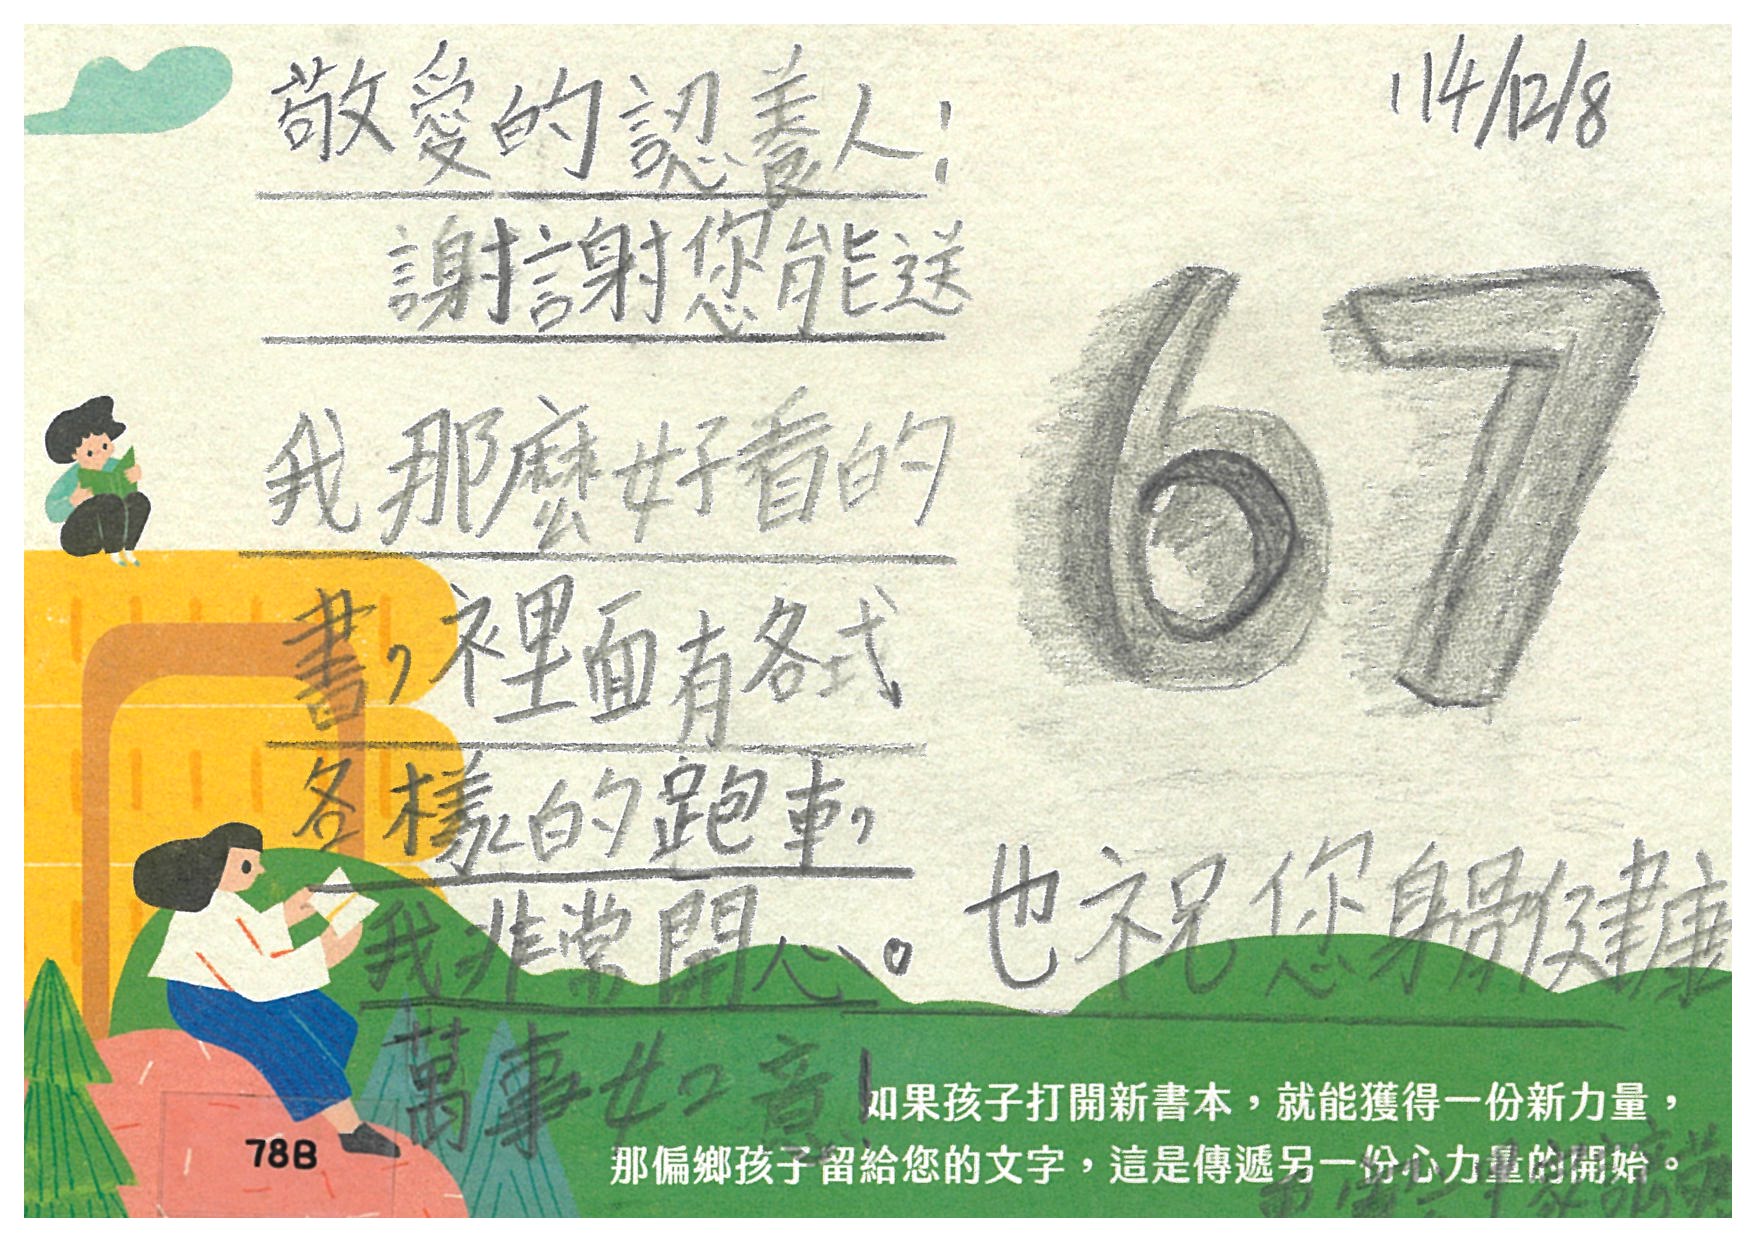 114/12/8
敬愛的認養人:
謝謝您能送
我那麼好看的
書,裡面有各式
各樣的跑車,
我非常開心。也祝您身體健康
萬事如意!
67
如果孩子打開新書本,就能獲得一份新力量,
那偏鄉孩子留給您的文字,這是傳遞另一份心力量的開始。
78B